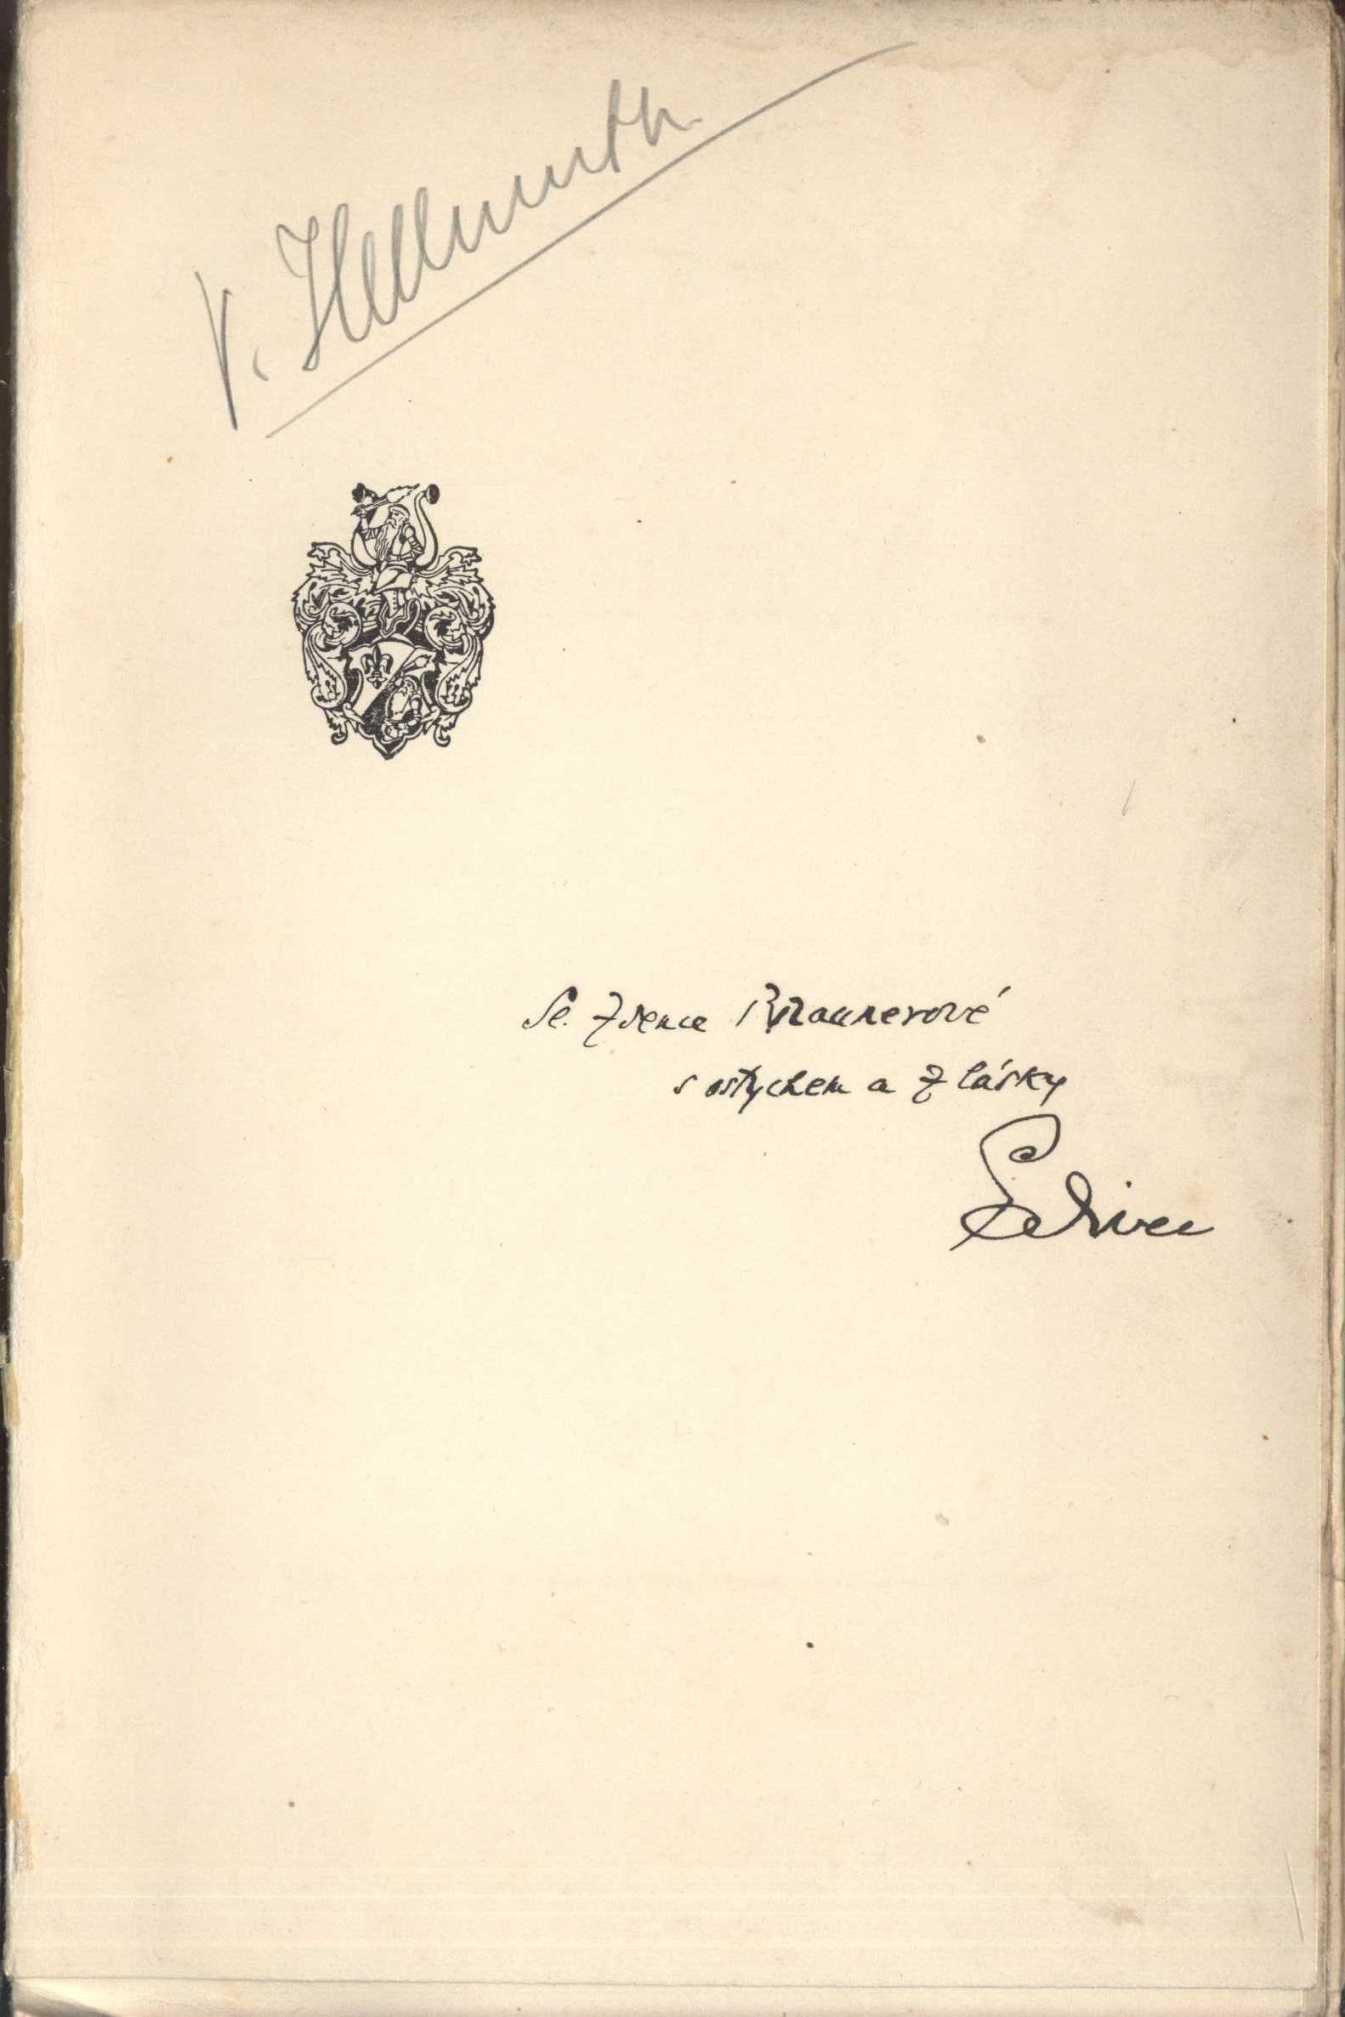 V. Hellmuth
Sl. Zdence Braunerové
s ostychem a z lásky